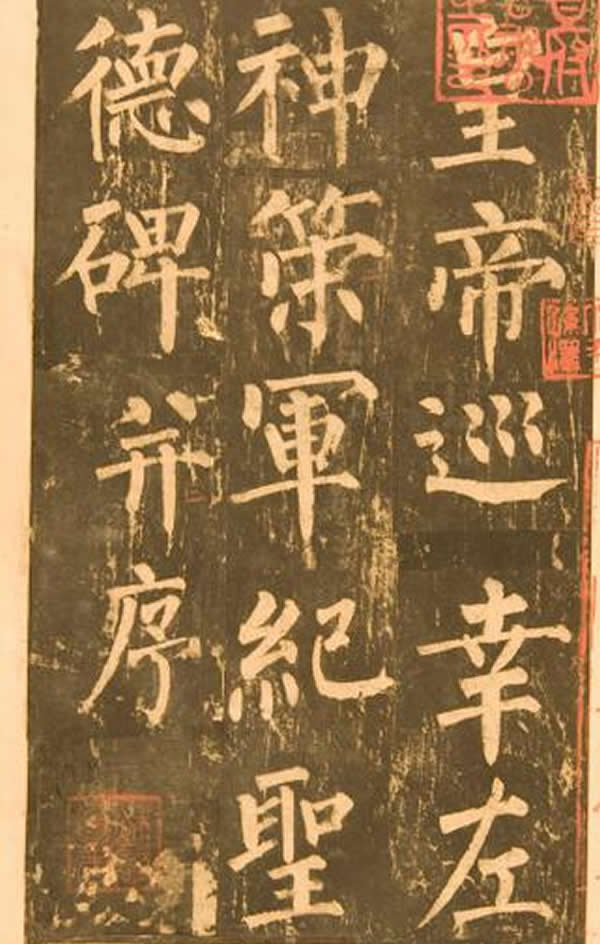 皇帝巡幸左
神策軍紀聖
德碑并序